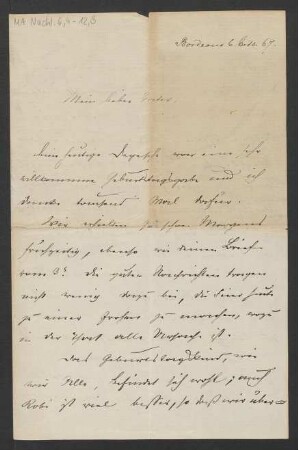 NA Nachl. 6,4-12,5
Bordeaux 6 Oct. 67.
Mein lieber Vater
Deine heutige Depesche war eine sehr
willkommene Geburtstagsgabe und ich
danke tausend Mal dafür.
Wir erhielten sie schon Morgens
frühzeitig, ebenso wie deinen Brief
vom 3t. Die guten Nachrichten tragen
nicht wenig dazu bei, die Feier heute
zu einer frohen zu machen, wozu
in der That alle Ursache ist.
Das Geburtstagskind, wie
wir Alle, befindet sich wohl; auch
Robi ist viel besser, so daß wir über=